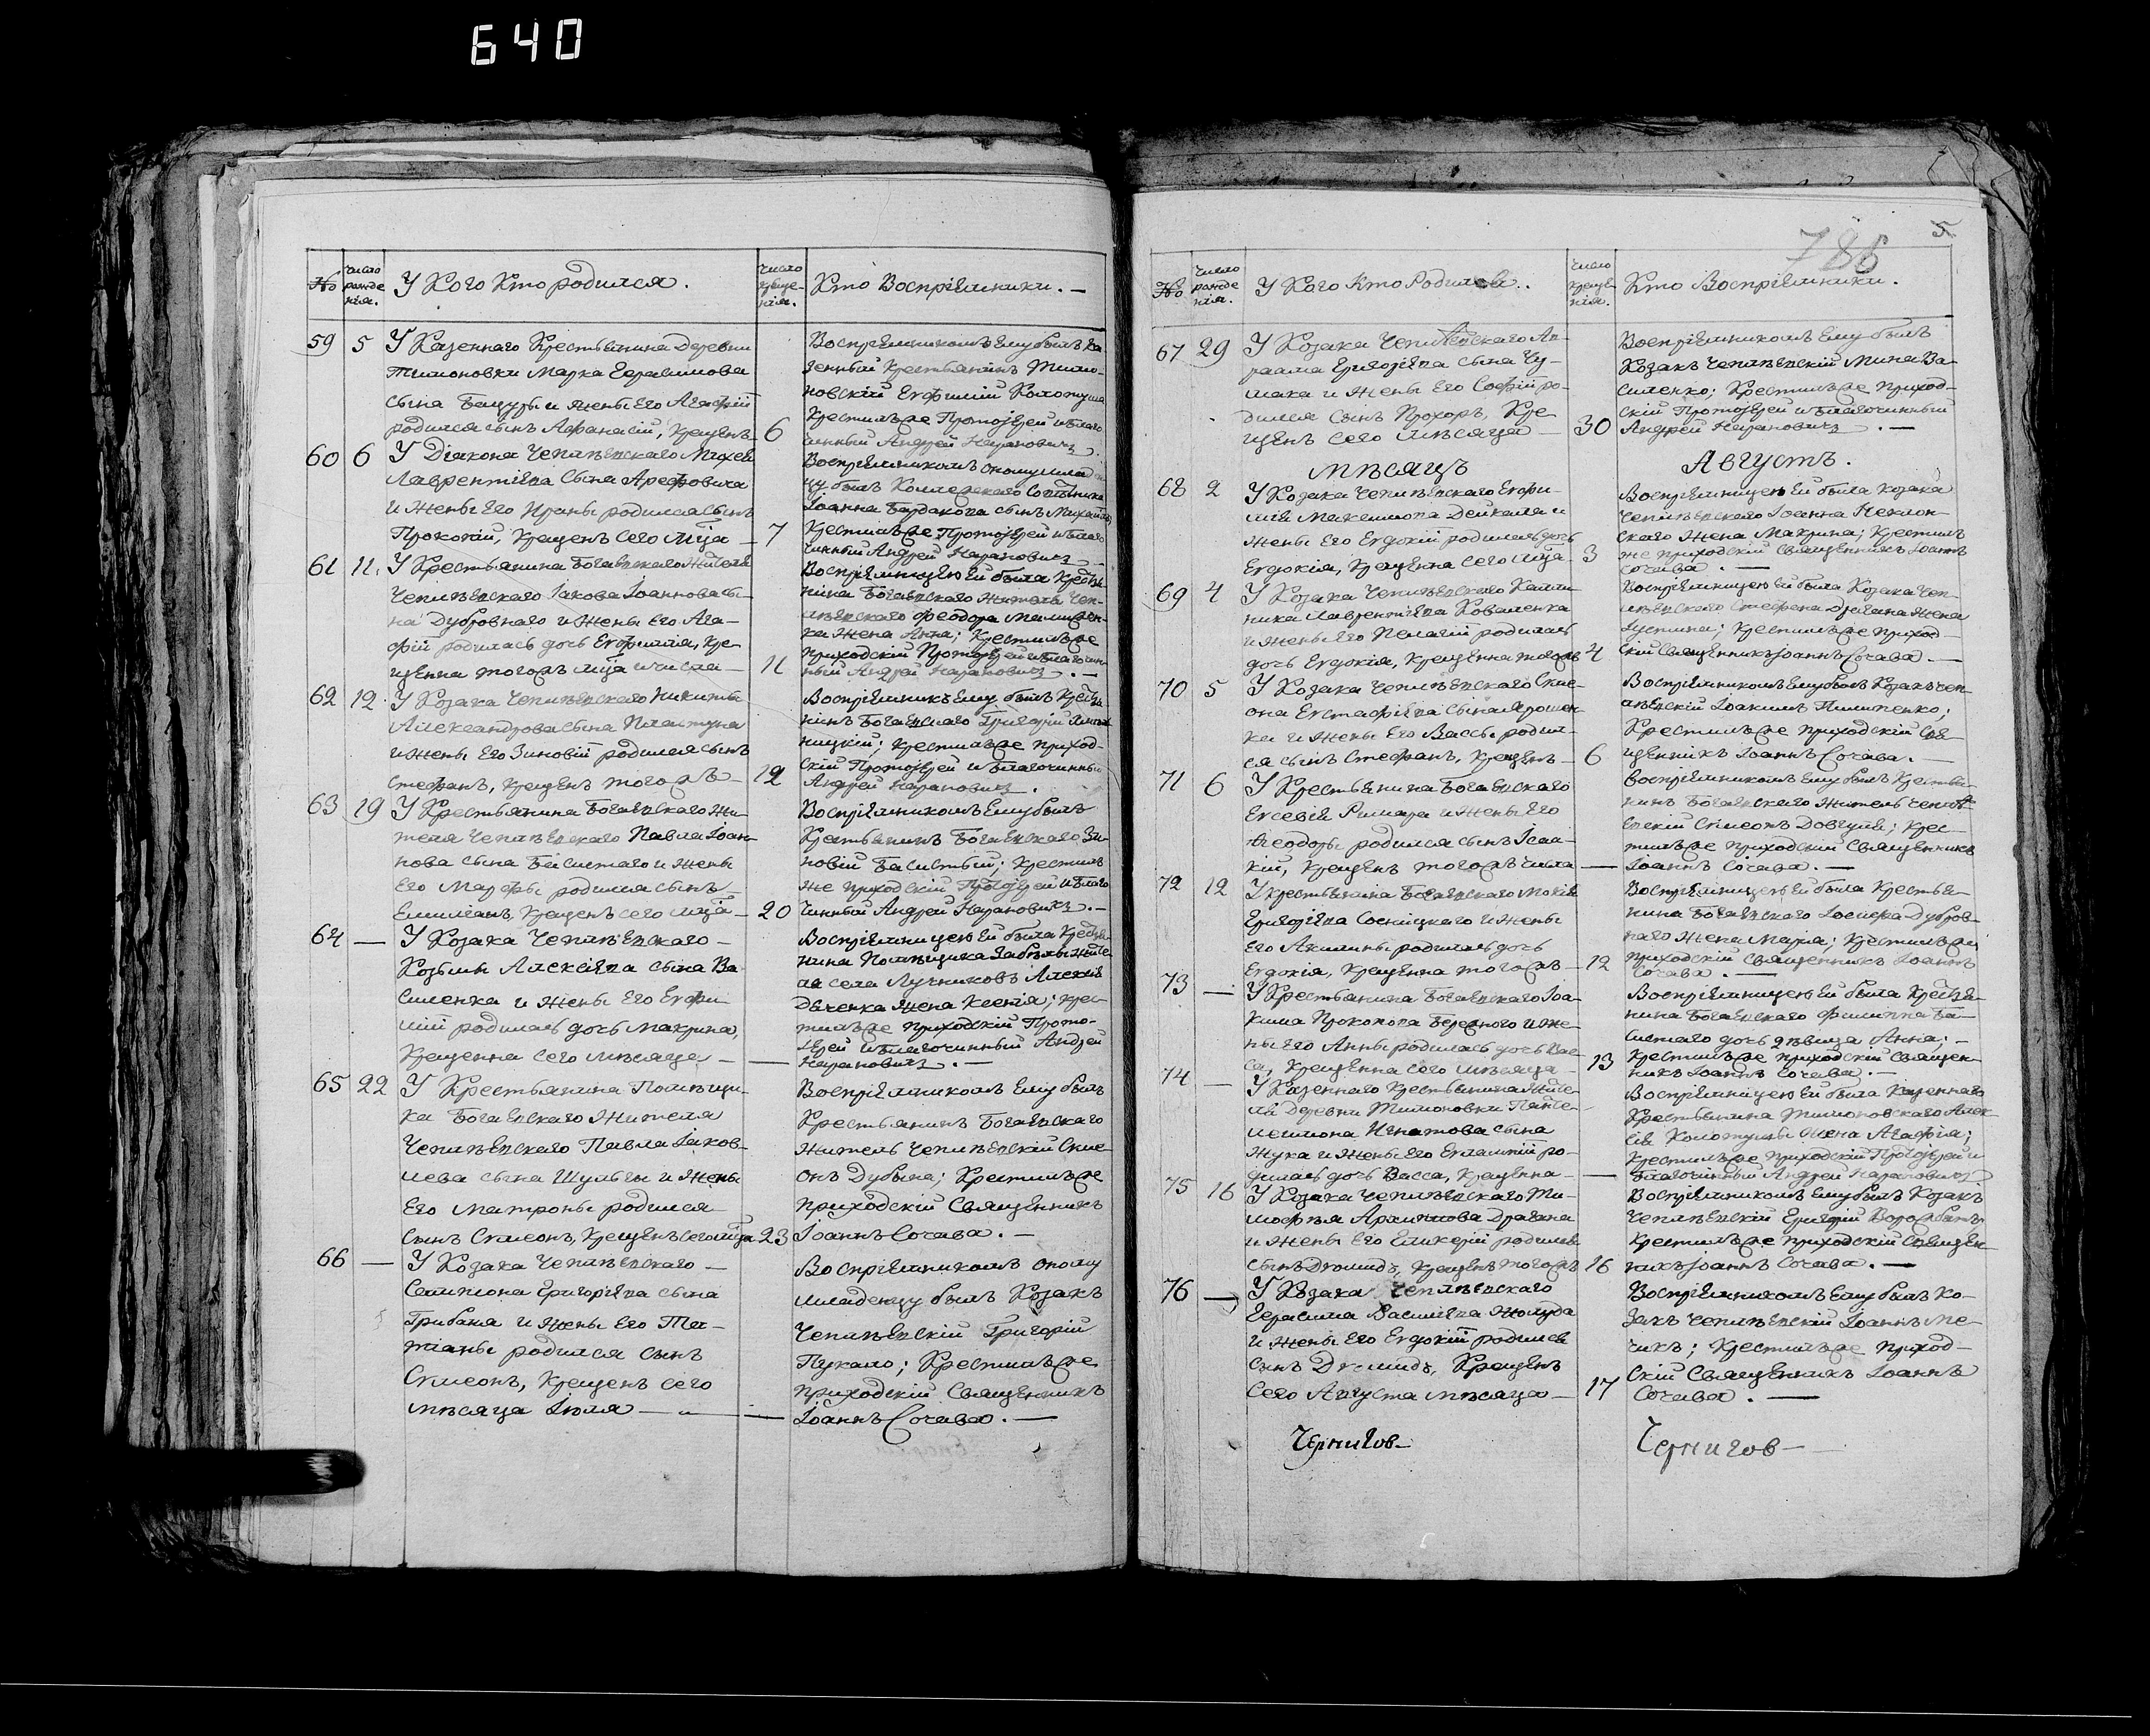 640
№
число
рожде
нія.
У Кого Кто родился.
число
креще-
нія.
Кто Воспріемники. —
59
5
У Казеннаго Крестьянина Деревни
Тимоновки Марка Герасимова
сына Бацуры и жены Его Агафіи
родился сынъ Афанасій, крещенъ
6
Воспріемникомъ Ему былъ ка-
зенный Крестьянинъ Тимо-
новскій Евфимій Колотуша
Крестилъ же Протоіерей и Благо
чинный Андрей
60
6
У Діакона Чеплѣевскаго Михея
Лаврентіева Сына Арефовича
и Жены Его Ирины родился сынъ
Прокопій, Крещенъ сего мца
7
Воспріемникомъ оному млад
цу былъ
Іоанна Бардакова сынъ Михаилъ
Крестилъ же Протоіерей и Благо
чинный Андрей
61
11.
У Крестьянина Богаевскаго Жителя
Чеплѣевскаго Іакова Іоаннова сы-
на Дубровнаго и Жены Его Ага-
фіи родилась дочь Евфимія, кре-
щенна того жъ мца и числа —
11
Воспріемницею Ей была Крестья-
нина Богаевскаго Жителя Чеп-
лѣевскаго Феодора
ка Жена Анна; Крестилъ же
приходскій Протоіерей и Благочин-
ный Андрей
62
12.
У Козака Чеплѣевскаго Никиты
Александрова сына Пластуна
и Жены Его Зиновіи родился сынъ
Стефанъ, Крещенъ того жъ —
12
Воспріемникъ Ему былъ Крестья-
нинъ Богаевскаго Григорій
ницкій; Крестилъ же приход-
скій Протоіерей и Благочинный
Андрей
63
19
У Крестьянина Богаевскаго Жи-
теля Чеплѣевскаго Павла Іоан-
нова сына Басистаго и Жены
Его Марфы родился сынъ
Емиліанъ, Крещенъ сего мца —
20
Воспріемникомъ Ему былъ
Крестьянинъ Богаевскаго Зи-
новій Басистый; Крестилъ
же приходскій Протоіерей и Благо
чинный Андрей
64
—
У Козака Чеплѣевскаго —
Козьмы Алексѣева сына Ва-
силенка и Жены Его Евфи-
міи родилась дочь Макрина,
Крещенна сего мѣсяца —
—
Воспріемницею Ей была Крестья-
нина Помѣщика Забѣлы жите
ля села Лучниковъ Алексѣя
Дяченка Жена Ксенія; Крес-
тилъ же приходскій Прото-
іерей и Благочинный Андрей
65
22
У Крестьянина Помѣщи-
ка Богаевскаго Жителя
Чеплѣевскаго Павла Іаков-
лева сына Шульги и Жены
Его Матроны родился
сынъ Симеонъ, Крещенъ сего мца
23
Воспріемникомъ Ему былъ
Крестьянинъ Богаевскаго
Житель Чеплѣевскій Симе-
онъ Дубына; Крестилъ же
приходскій Священникъ
Іоаннъ Сочава. —
66
—
У Козака Чеплѣевскаго —
Сампсона Григоріева сына
Грибаня и Жены Его Та-
тіаны родился сынъ
Симеонъ, Крещенъ сего
мѣсяца Іюля —
—
Воспріемникомъ оному
младенцу былъ Козакъ
Чеплѣевскій Григорій
Пукало; Крестилъ же
приходскій Священникъ
Іоаннъ Сочава. —
5
786
№
число
рожде
нія.
У Кого Кто Родился.
число
креще
нія.
Кто Воспріемники.
67
29
У Козака Чеплѣевскаго Ав-
раама Григоріева сына Чу-
мака и Жены Его Софіи ро-
дился сынъ Прохоръ, Кре-
щенъ сего мѣсяца —
30
Воспріемникомъ Ему былъ
Козакъ Чеплѣевскій Мина Ва-
силенко; Крестилъ же приход-
скій Протоіерей и Благочинный
Андрей
мѣсяцъ
Августъ.
68
2
У Козака Чеплѣевскаго Евфи-
мія Максимова Дейкала и
Жены Его Евдокіи родилась дочь
Евдокія, Крещенна сего мца
3
Воспріемницею Ей была Козака
Чеплѣевскаго Іоанна
скаго Жена Макрина; Крестилъ
же приходскій Священникъ Іоаннъ
Сочава. —
69
4
У Козака Чеплѣевскаго Калли-
ника Лаврентіева Коваленка
и Жены Его Пелагіи родилась
дочь Евдокія, Крещенна того жъ
4
Воспріемницею Ей была Козака Чеп-
лѣевскаго Стефана Драгана Жена
Іустина; Крестилъ же приход-
скій Священникъ Іоаннъ Сочава. —
70
5
У Козака Чеплѣевскаго Симе-
она Евстафіева сына Ярошен-
ка и Жены Его Вассы родил-
ся сынъ Стефанъ, Крещенъ —
6
Воспріемникомъ Ему былъ Козакъ Чеп-
лѣевскій Іоакимъ Пилипенко;
Крестилъ же приходскій Свя-
щенникъ Іоаннъ Сочава. —
71
6
У Крестьянина Богаевскаго
Евсевія Римара и Жены Его
Ѳеодоры родился сынъ Исаа-
кій, Крещенъ того жъ числа
—
Воспріемникомъ Ему былъ Крестья-
нинъ Богаевскаго Житель Чеплѣ-
евскій Симеонъ Довгуля; Крес-
тилъ же приходскій Священникъ
Іоаннъ Сочава. —
72
12
У Крестьянина Богаевскаго Мокія
Григоріева Сосницкаго и Жены
Его Акилины родилась дочь
Евдокія, Крещенна того жъ —
12
Воспріемницею Ей была Крестья-
нина Богаевскаго Іосифа Дубров-
наго Жена Марія; Крестилъ же
приходскій Священникъ Іоаннъ
Сочава. —
73
—
У Крестьянина Богаевскаго Іоа-
кима Прокопова Бережного и Же-
ны Его Анны родилась дочь Вас-
са, Крещенна сего мѣсяца —
13
Воспріемницею Ей была Крестья-
нина Богаевскаго Филиппа Ба-
систаго дочь дѣвица Анна; —
Крестилъ же приходскій Священ-
никъ Іоаннъ Сочава. —
74
—
У Казеннаго Крестьянина Жите-
ля Деревни Тимоновки Панте-
леимона Игнатова сына
Жука и Жены Его Евлампіи ро-
дилась дочь Васса, Крещенна —
—
Воспріемницею Ей была Казеннаго
Крестьянина Тимоновскаго Алек-
сѣя Колотуши Жена Агафія;
Крестилъ же приходскій Протоіерей и
Благочинный Андрей
75
16
У Козака Чеплѣевскаго Ти-
мофея Архипова Драгана
и Жены Его Гликеріи родился
сынъ Діомидъ, Крещенъ того жъ
16
Воспріемникомъ Ему былъ Козакъ
Чеплѣевскій Григорій
Крестилъ же приходскій Священ-
никъ Іоаннъ Сочава. —
76
—
У Козака Чеплѣевскаго
Герасима Василіева Жолуда
и Жены Его Евдокіи родился
сынъ Діомидъ, Крещенъ
сего Августа мѣсяца —
17
Воспріемникомъ Ему былъ Ко-
закъ Чеплѣевскій Іоаннъ Ме-
чикъ; Крестилъ же приход-
скій Священникъ Іоаннъ
Сочава. —
Чернигов—
Чернигов—